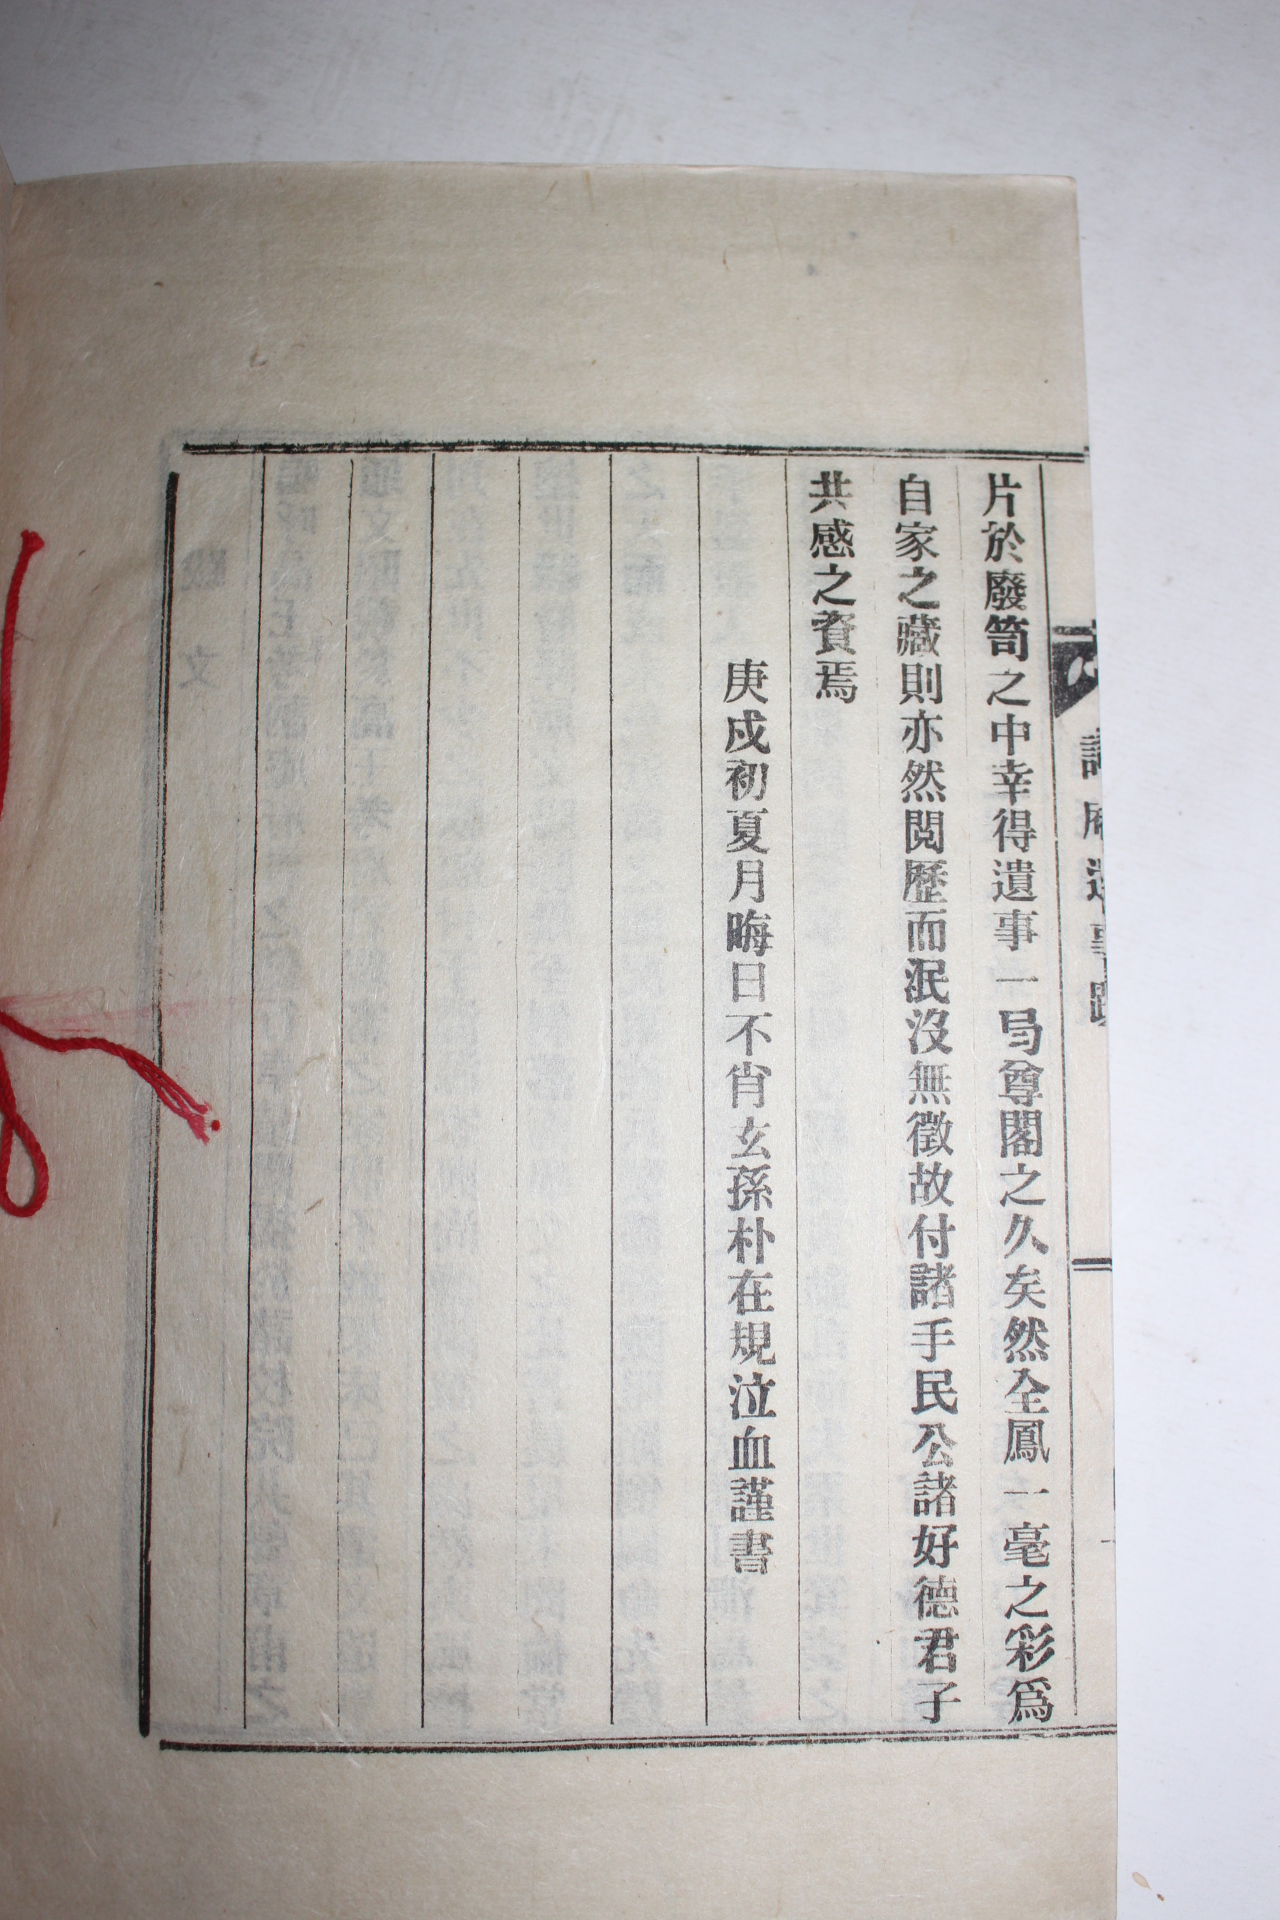 片於廢笥之中幸得遺事一局尊閣之久矣然全鳳一毫之彩爲
自家之藏則亦然閱歷而泯沒無徵故付諸手民公諸好德君子
共感之資焉
庚戌初夏月晦日不肖玄孫朴在規泣血謹書